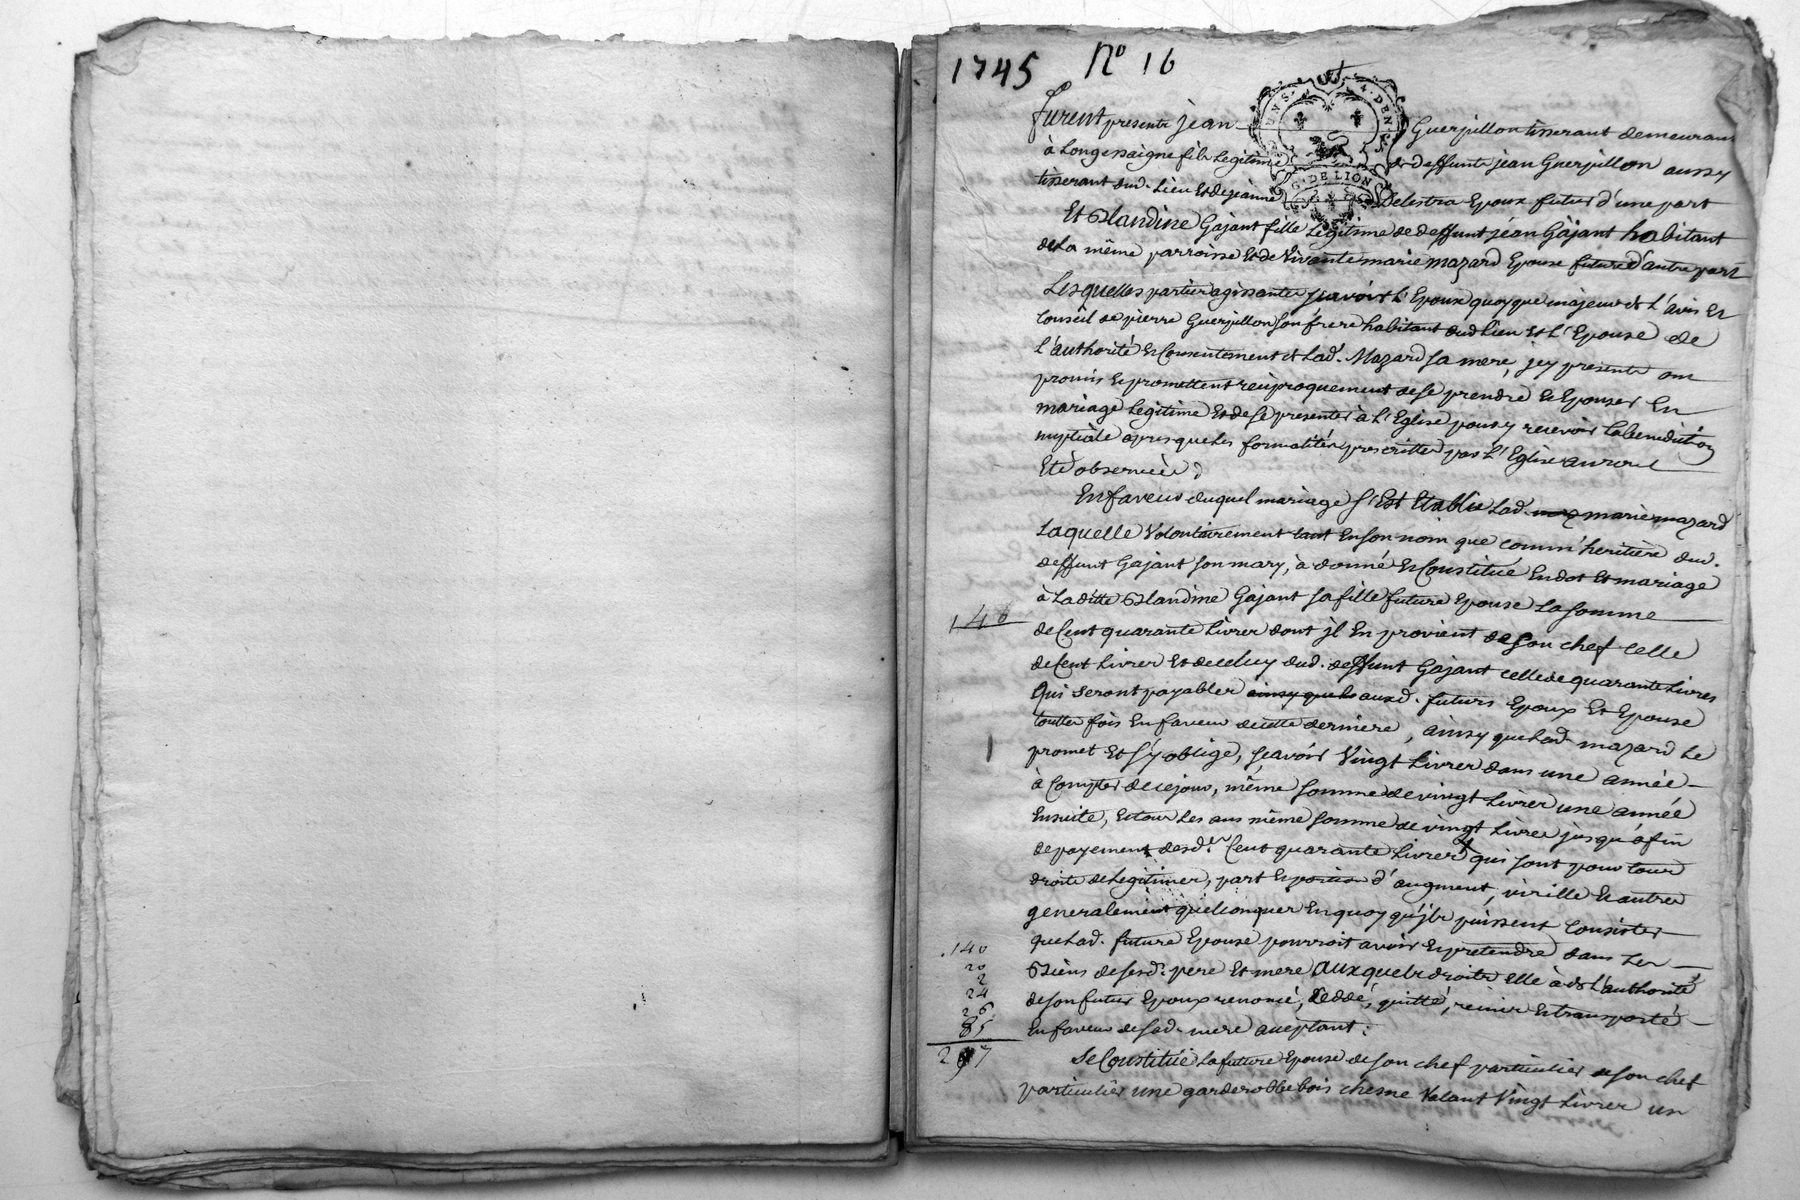 1745 No 16
G. DE LION
furent presents jean Guerpillon tisserant demeurant
à Longessaigne fils Legitime de deffunts jean Guerpillon aussy
tisserant dud. Lieu Et de jeanne Delestra Epoux futur d'une part
Et Blandine Gajant fille Legitime de deffunt jean Gajant habitant
de la même parroisse Et de vivante marie mazard Epouse future d'autre part
Lesquelles parties agissantes sçavoir L'Epoux quoyque majeur de L'avis Et
Conseil de pierre Guerpillon son frere habitant dud Lieu Et L'Epouse de
L'authorité Et Consentement de Lad. Mazard sa mere, jcy presente ont
promis Et promettent reciproquement de se prendre Et Epouser En
mariage Legitime Et de se presenter à L'Eglise pour y recevoir la benediction
nuptiale apres que Les formalités prescrittes par L'Eglise auront
Eté observeés
En faveur duquel mariage s'Est Etablie Lad. marie mazard
Laquelle Volontairement tant En son nom que comm' heritiere dud.
deffunt Gajant son mary, à donné Et Constitué En dot Et mariage
à Laditte Blandine Gajant sa fille future Epouse La somme
140
de Cent quarante Livres dont jl En provient de son chef celle
de Cent Livres Et de celuy dud. deffunt Gajant celle de quarante Livres
Qui seront payables ainsy que le auxd. futurs Epoux Et Epouse
touttes fois En faveur de cette derniere, ainsy que Lad mazard Le
promet Et s'y oblige, sçavoir Vingt Livres dans une année
à Compter de ce jour, même somme de vingt Livres une année
Ensuite, Et tous Les ans même somme de vingt Livres jusqu'à fin
de payement desd. Cent quarante Livres qui sont pour tous
droits de Legitimes, part Et portion d'augment, virille Et autres
generalement quelconques En quoy qu'jls puissent Consister
que Lad. future Epouse pourroit avoir Et pretendre dans Les
Biens de sesd. pere Et mere Auxquels droits Elle à de L'authorité
de son futur Epoux renoncé, Ceddé, quitté, remis Et transporté
En faveur de sad. mere acceptant.
140
20
2
24
26
85
297
Se Constitüe La future Epouse de son chef particulier de son chef
particulier une garderobbe bois chesne Valant Vingt Livres un